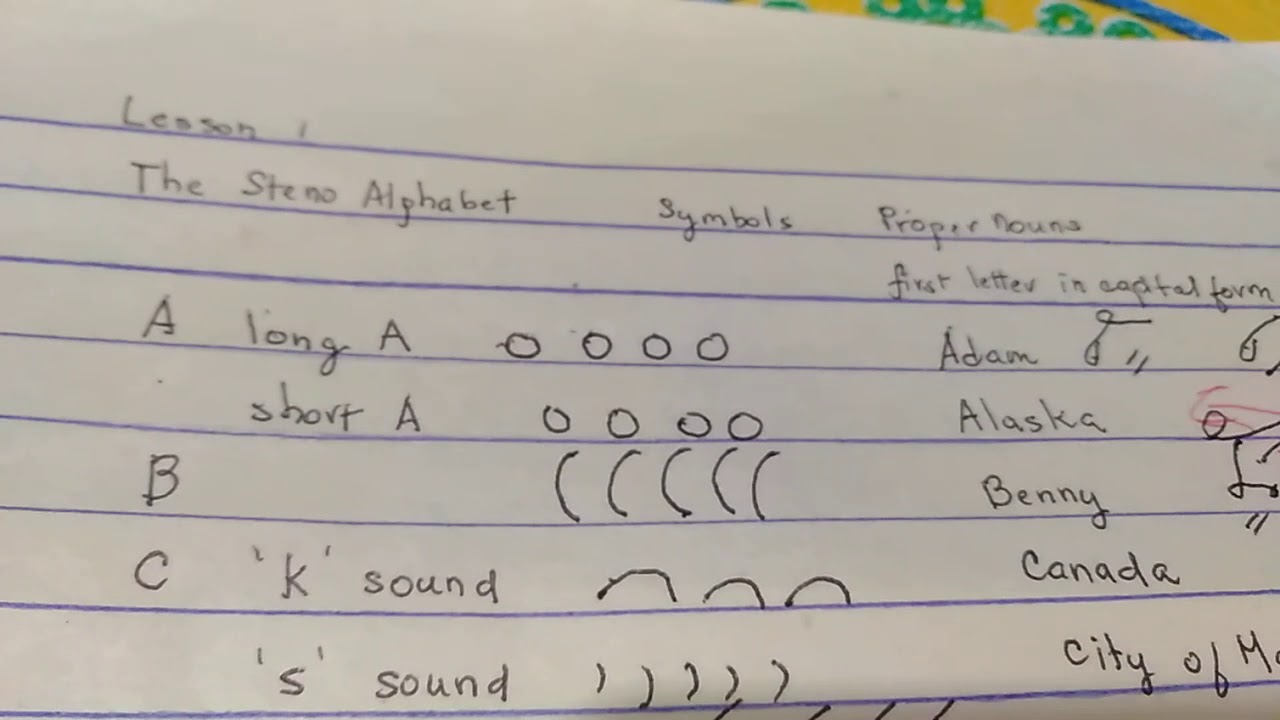 Lesson 1
The Steno Alphabet Symbols Proper nouns
first letter in capital form
A long A Adam
short A Alaska
B Benny
C 'k' sound Canada
's' sound City of